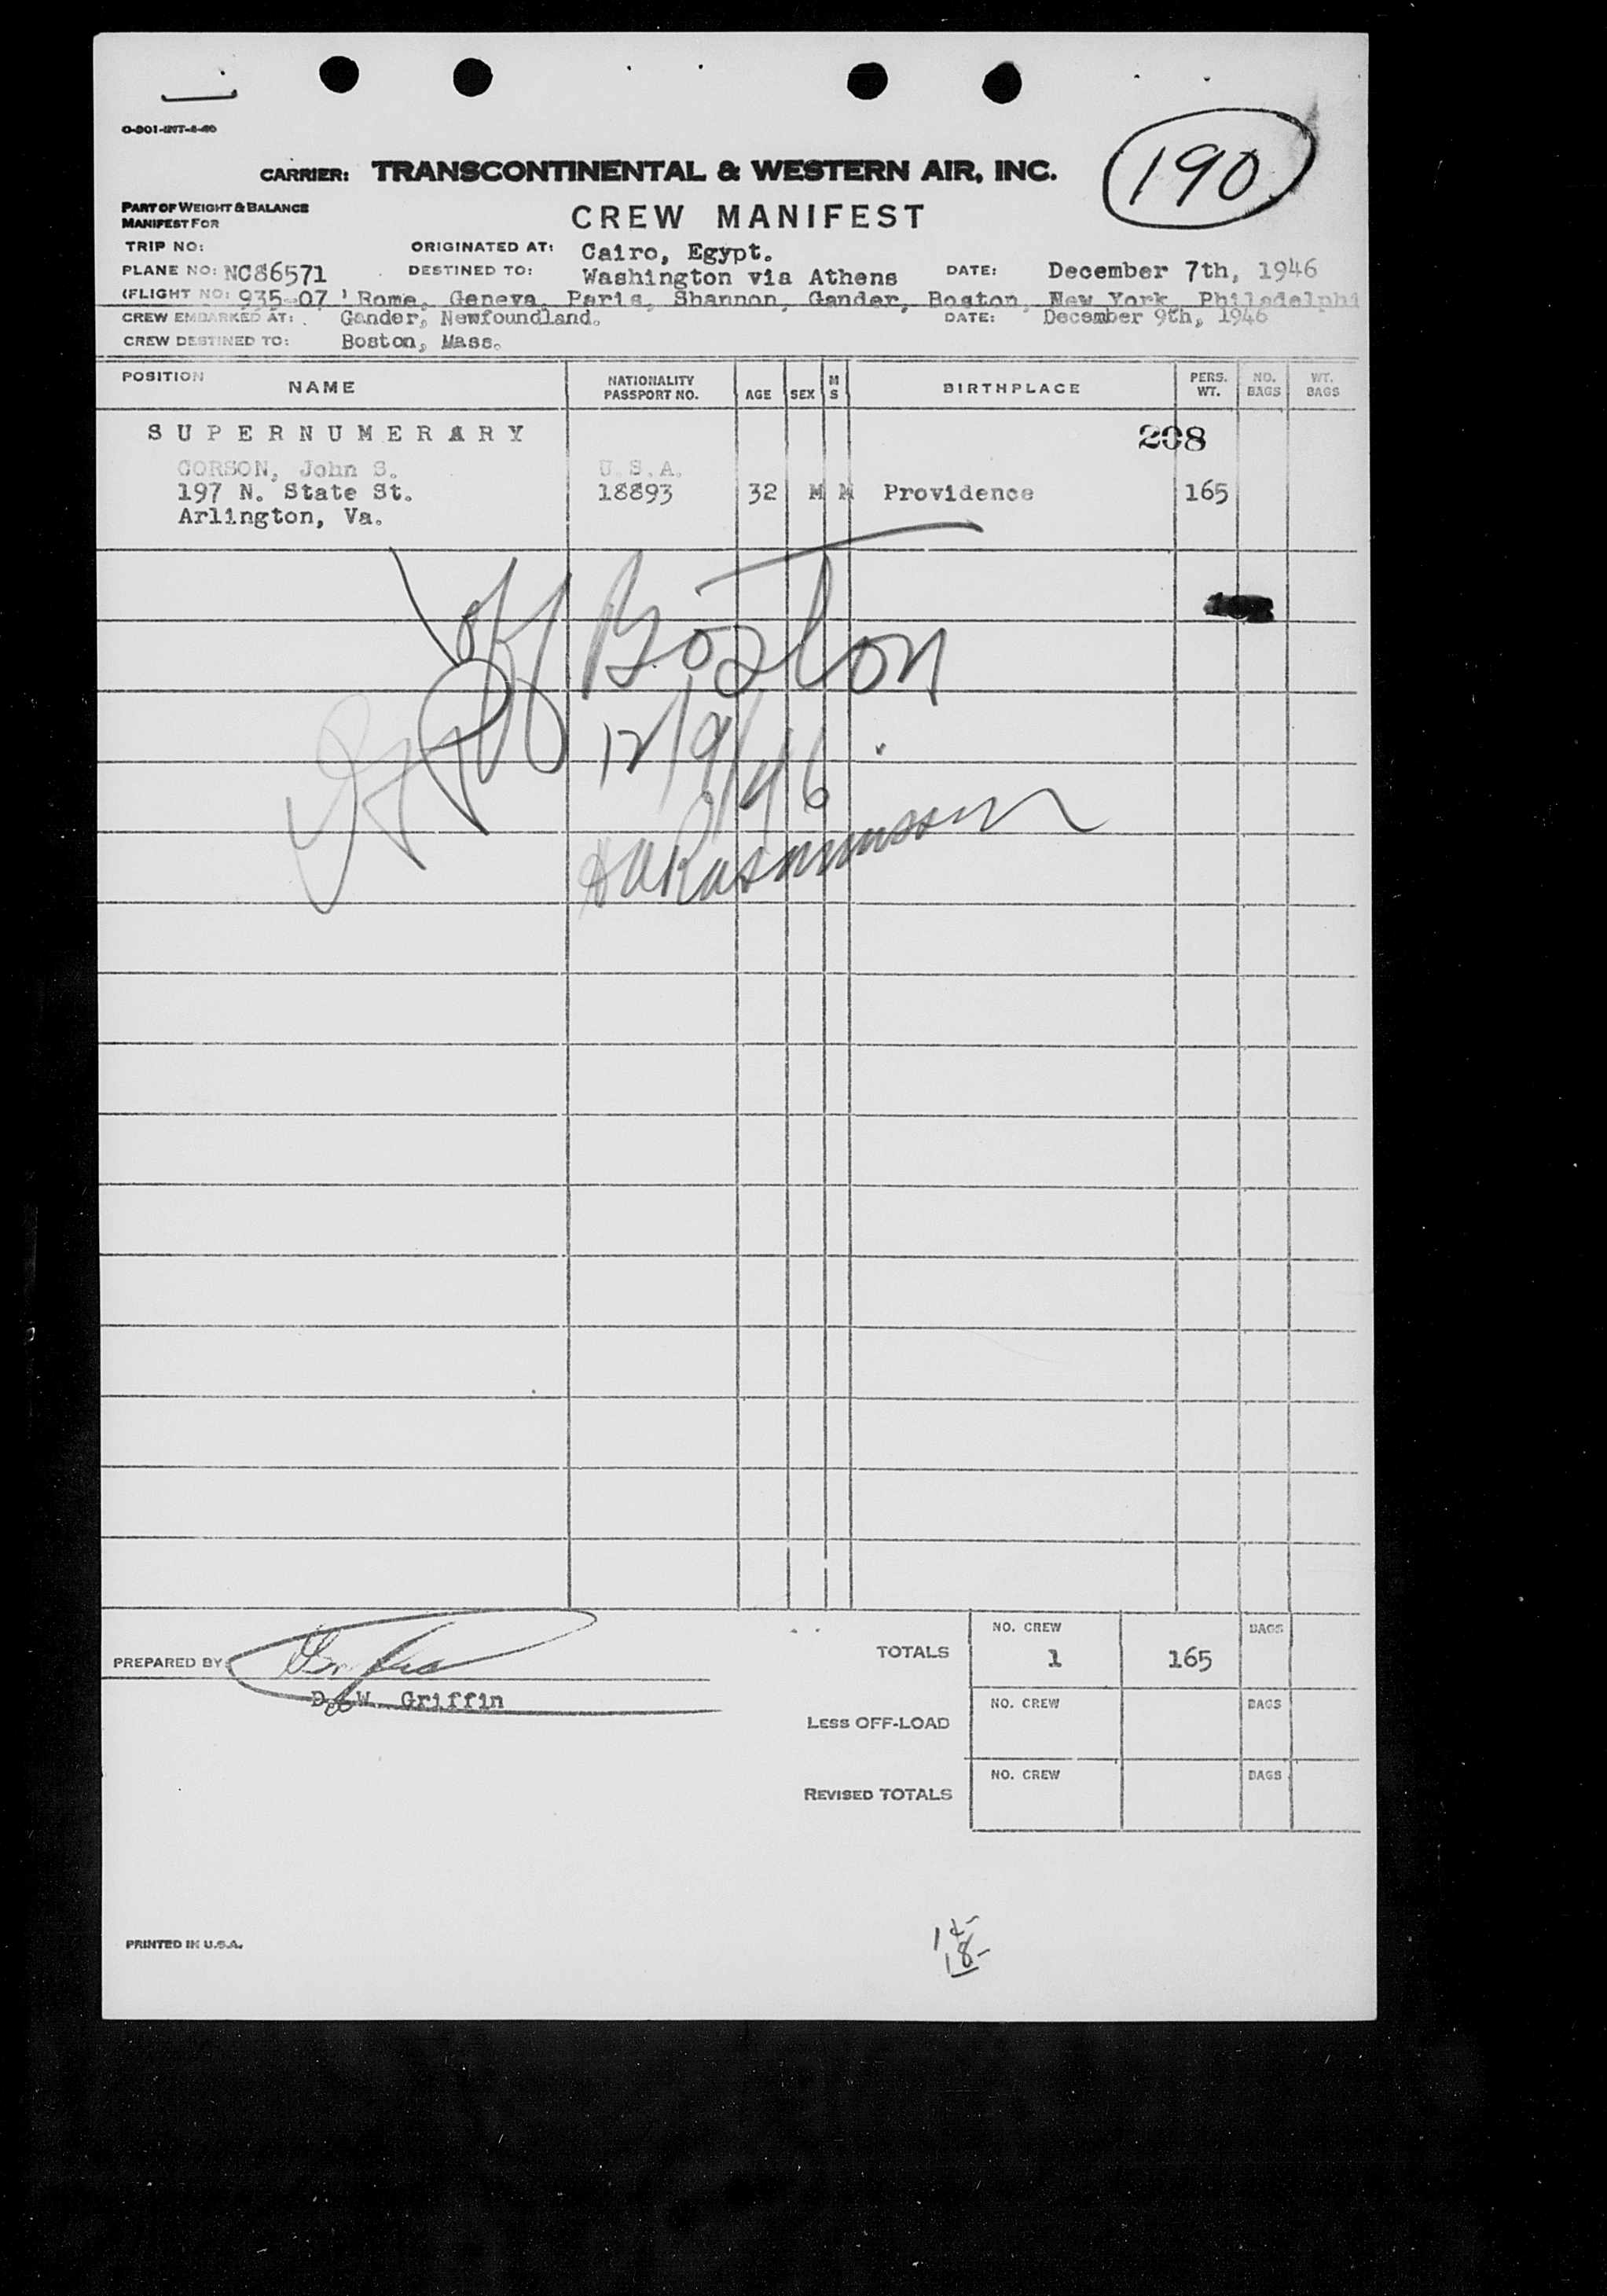 O-901-INT-4-46
190
CARRIER: TRANSCONTINENTAL & WESTERN AIR, INC.
PART OF WEIGHT & BALANCE
MANIFEST FOR
CREW MANIFEST
TRIP NO: ORIGINATED AT: Cairo, Egypt.
PLANE NO: NC86571 DESTINED TO: Washington via Athens DATE: December 7th, 1946
(FLIGHT NO: 935-07 ) Rome, Geneva, Paris, Shannon, Gander, Boston, New York, Philadelphi
CREW EMBARKED AT: Gander, Newfoundland. DATE: December 9th, 1946
CREW DESTINED TO: Boston, Mass.
POSITION NAME NATIONALITY PASSPORT NO. AGE SEX M S BIRTHPLACE PERS. WT. NO. BAGS WT. BAGS
SUPERNUMERARY 208
CORSON, John S. U.S.A.
197 N. State St. 18893 32 M M Providence 165
Arlington, Va.
off Boston
12/9/46
Rasmussen
TOTALS NO. CREW 1 165 BAGS
PREPARED BY:
D. W. Griffin
LESS OFF-LOAD NO. CREW BAGS
REVISED TOTALS NO. CREW BAGS
PRINTED IN U.S.A.
12-
18-